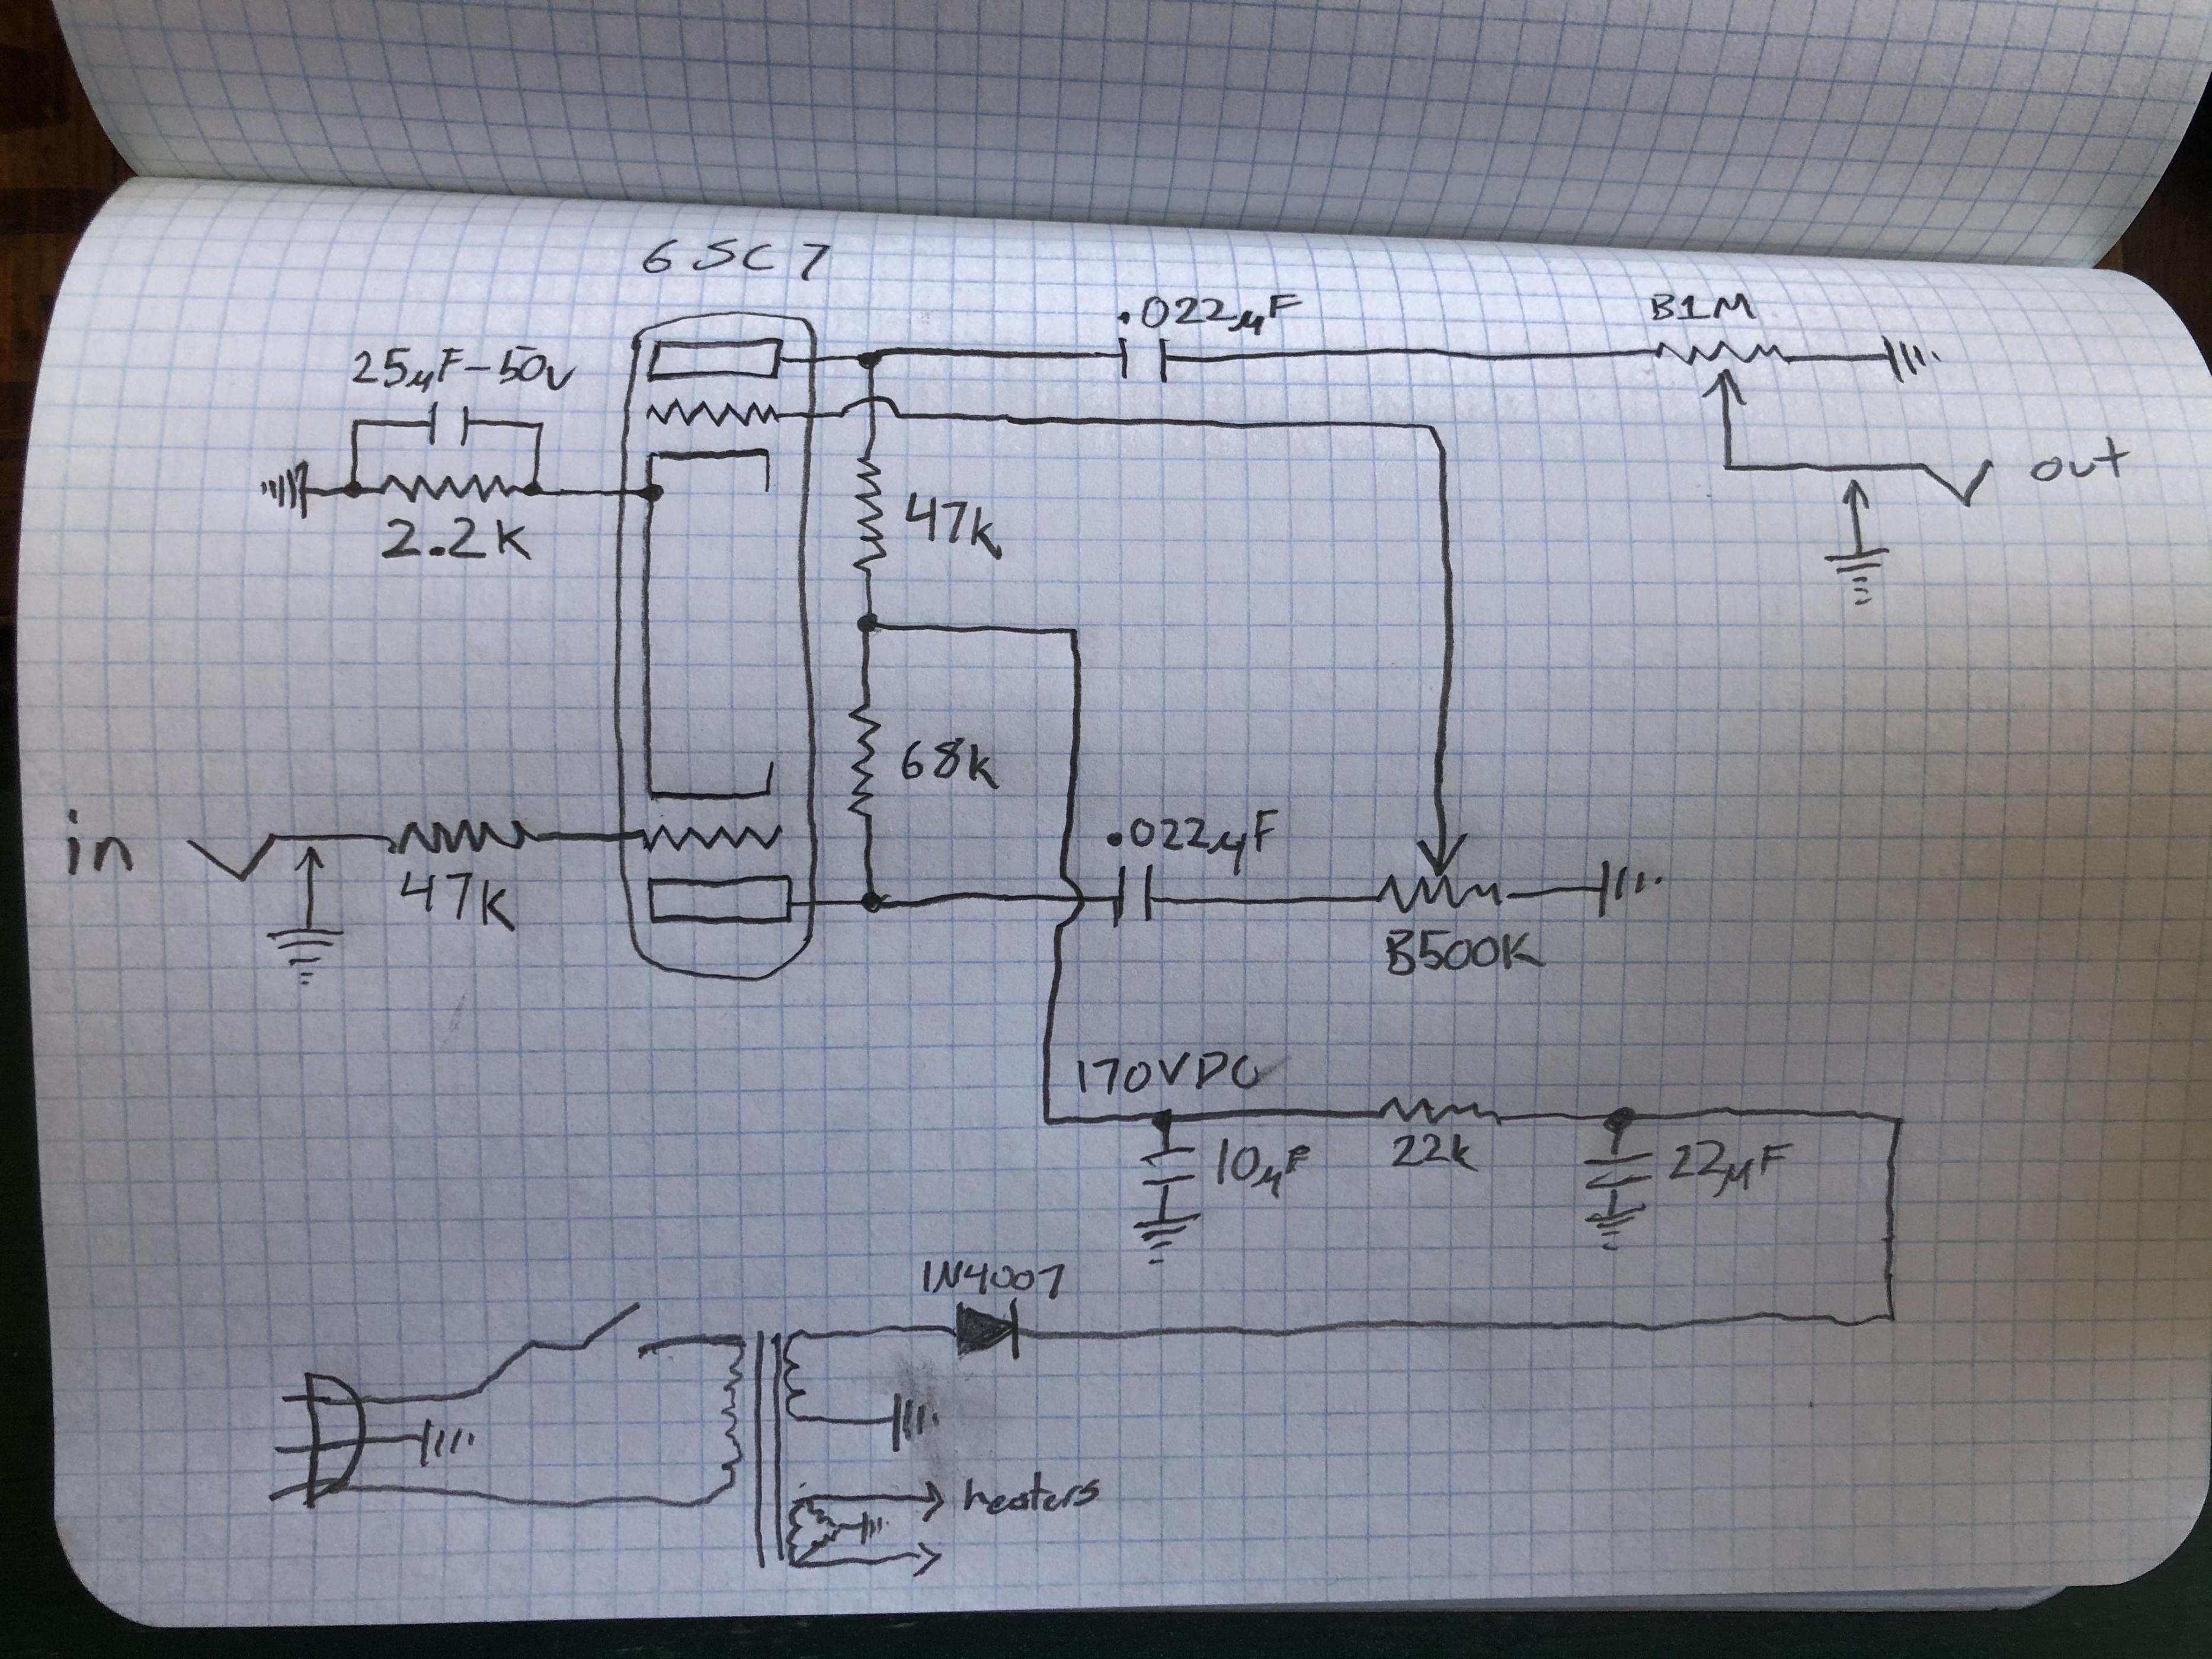 6SC7
.022µF
B1M
25µF-50v
out
2.2K
47k
68k
in
47K
.022µF
B500K
170VDC
10µF
22k
22µF
1N4007
heaters